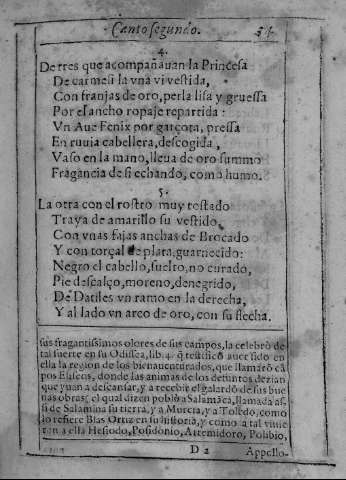 Canto segundo.
4.
De tres que acompañauan la Princesa
De carmesi la vna vi vestida,
Con franjas de oro, perla lisa y gruessa
Por el ancho ropaje repartida:
Vn Aue Fenix por garçota, pressa
En ruuia cabellera, descogida,
Vaso en la mano, lleua de oro summo
Fragancia de si echando, como humo.
5.
La otra con el rostro muy tostado
Traya de amarillo su vestido,
Con vnas fajas anchas de Brocado
Y con torçal de plata, guarnecido:
Negro el cabello, suelto, no curado,
Pie descalço, moreno, denegrido,
De Datiles vn ramo en la derecha,
Y al lado vn arco de oro, con su flecha.
sus fragantissimos olores de sus campos, la celebrò de
tal suerte en su Odissea, lib. 4. q̃ testificò auer sido en
ella la region de los bienauenturados, que llamarõ cã
pos Eliseos, donde las animas de los defuntos dezian
que yuan a descansar, y a recebir el galardõ de sus bue
nas obras; el qual dizen poblò a Salamãca, llamada as
si de Salamina su tierra, y a Murcia, y a Toledo, como
lo refiere Blas Ortiz en su historia, y como a tal vinie
ron a ella Hesiodo, Posidonio, Artemidoro, Polibio,
D 2 Appello-